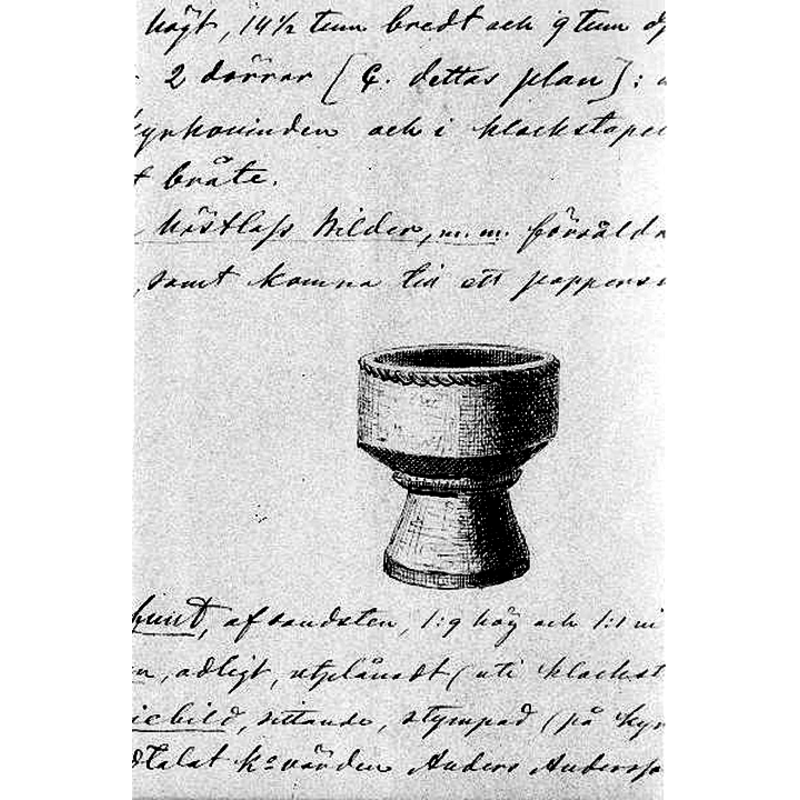 högt, 14½ tum bredt och 9 tum dj
2 dörrar [Ç. dettas plan]: a
kyrkovinden och i klockstapel
t bråte.
hästlass bilder, m.m. försåldes
, samt komna till ett pappers
funt, af sandsten, 1:9 hög och 1:1 vi
n, adligt, utplånadt (uti klockst
iebild, sittande, stympad (på kyr
dtalat k:o värden Anders Anderss